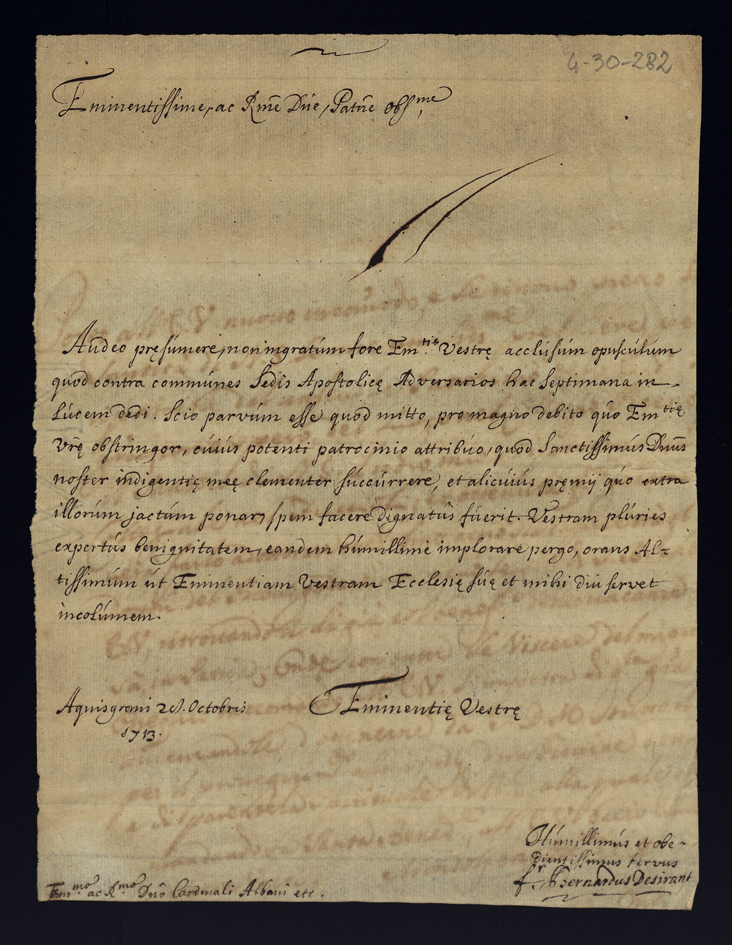 4-30-282
Eminentissime, ac Rm̃e Dñe, Patrñe obs.me
Audeo pręsumere, non ingratum fore Em.tię Vestrę acclusum opusculum
quod contra communes Sedis Apostolicę Adversarios hac Septimana in
Lucem dedi. Scio parvum esse quod mitto, pro magno debito quo Em.tię
Vrę obstringor, cuius potenti patrocinio attribuo, quod Sanctissimus Dnũs
noster indigentię meę clementer succurrere, et alicuius pręmij quo extra
illorum jactum ponar, spem facere dignatus fuerit. Vestram pluries
expertus benignitatem, eandem humillime implorare pergo, orans Al-
tissimum ut Eminentiam Vestram Ecclesię suę et mihi diu servet
incolumem.
Aquisgrani 28. Octobris
1713.
Eminentię Vestrę
Humillimus et obe-
dientissimus servus
f. Bernardus Desirant
Em.mo ac R.mo Dnõ Cardinali Albani etc.